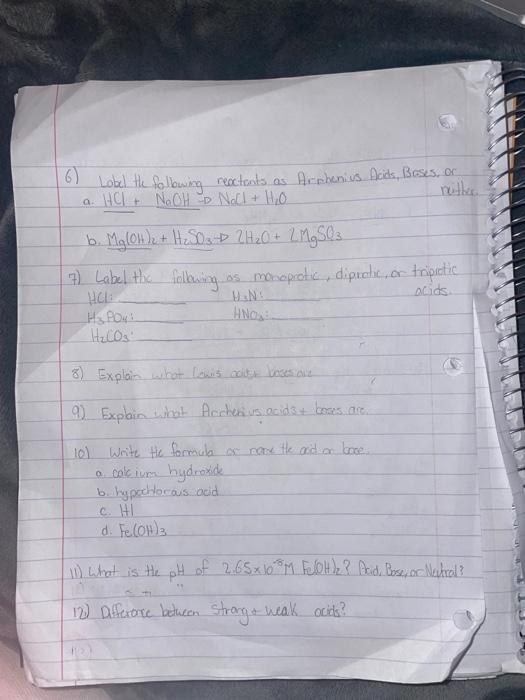 6) Label the following reactants as Arrhenius Acids, Bases, or neither.
a. HCl + NaOH → NaCl + H₂O
b. Mg(OH)₂ + H₂SO₃ → 2H₂O + 2MgSO₃
7) Label the following as monoprotic, diprotic, or triprotic acids.
HCl: H₃N:
H₃PO₄: HNO₃:
H₂CO₃:
8) Explain what Lewis acids + bases are
9) Explain what Arrhenius acids + bases are.
10) Write the formula or name the acid or base.
a. calcium hydroxide
b. hypochlorous acid
c. HI
d. Fe(OH)₃
11) What is the pH of 2.65x10⁻⁸M Fe(OH)₂? Acid, Base, or Neutral?
12) Difference between strong + weak acids?